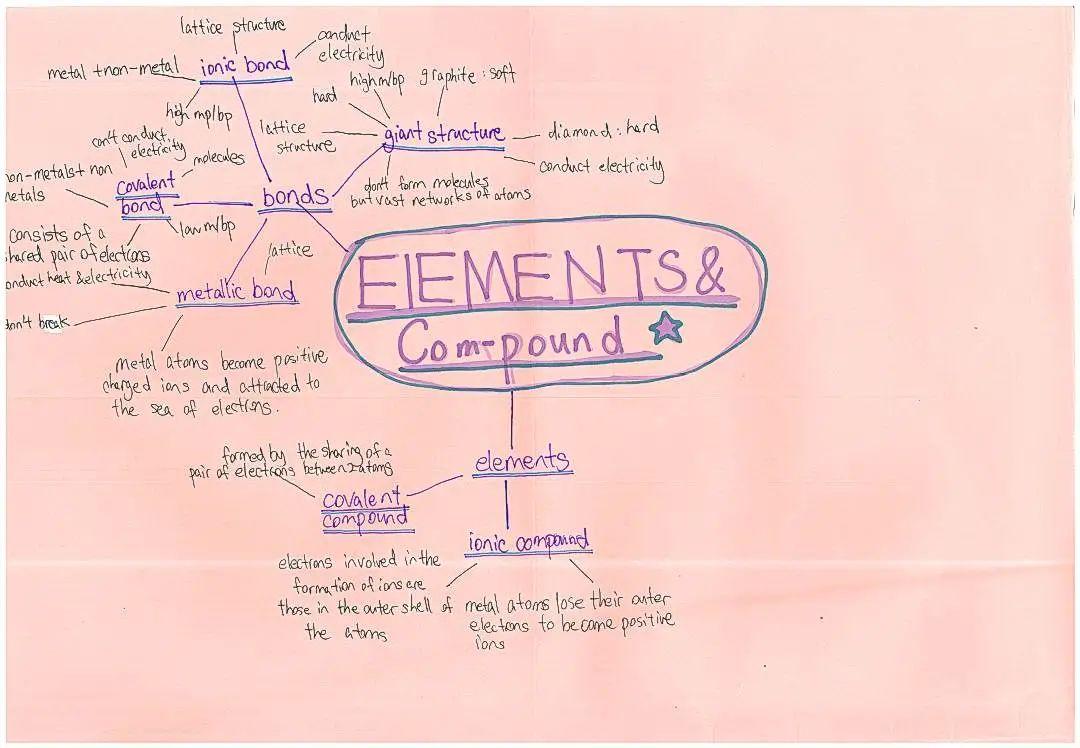 lattice structure
conduct
electricity
metal +non-metal
ionic bond
high mp/bp
high m/bp
graphite : soft
hard
giant structure
lattice
structure
diamond : hard
conduct electricity
don't form molecules
but vast networks of atoms
can't conduct
electricity
molecules
on-metals+ non
etals
covalent
bond
bonds
low m/bp
consists of a
hared pair of electrons
onduct heat & electricity
lattice
metallic bond
on't break
metal atoms become positive
charged ions and attracted to
the sea of electrons.
ElEMENTS&
Com-pound
elements
formed by the sharing of a
pair of electrons between 2 atoms
covalent
compound
ionic compound
electrons involved in the
formation of ions are
those in the outer shell of
the atoms
metal atoms lose their outer
electrons to become positive
ions